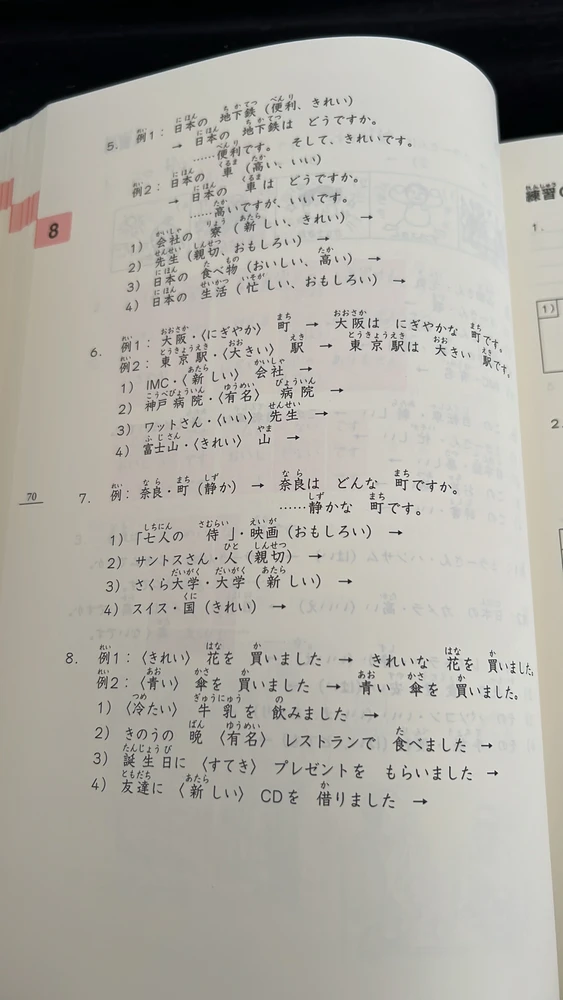 5. 例1：日本の 地下鉄（便利、きれい）
→ 日本の 地下鉄は どうですか。
……便利です。 そして、きれいです。
例2：日本の 車（高い、いい）
→ 日本の 車は どうですか。
……高いですが、いいです。
1） 会社の 寮（新しい、きれい） →
2） 先生（親切、おもしろい） →
3） 日本の 食べ物（おいしい、高い） →
4） 日本の 生活（忙しい、おもしろい） →
6. 例1：大阪・〈にぎやか〉 町 → 大阪は にぎやかな 町です。
例2：東京駅・〈大きい〉 駅 → 東京駅は 大きい 駅です。
1） IMC・〈新しい〉 会社 →
2） 神戸病院・〈有名〉 病院 →
3） ワットさん・〈いい〉 先生 →
4） 富士山・〈きれい〉 山 →
7. 例：奈良・町（静か） → 奈良は どんな 町ですか。
……静かな 町です。
1）「七人の 侍」・映画（おもしろい） →
2） サントスさん・人（親切） →
3） さくら大学・大学（新しい） →
4） スイス・国（きれい） →
8. 例1：〈きれい〉 花を 買いました → きれいな 花を 買いました。
例2：〈青い〉 傘を 買いました → 青い 傘を 買いました。
1） 〈冷たい〉 牛乳を 飲みました →
2） きのうの 晩 〈有名〉 レストランで 食べました →
3） 誕生日に 〈すてき〉 プレゼントを もらいました →
4） 友達に 〈新しい〉 CDを 借りました →
8
70
練習
1.
1）
2.